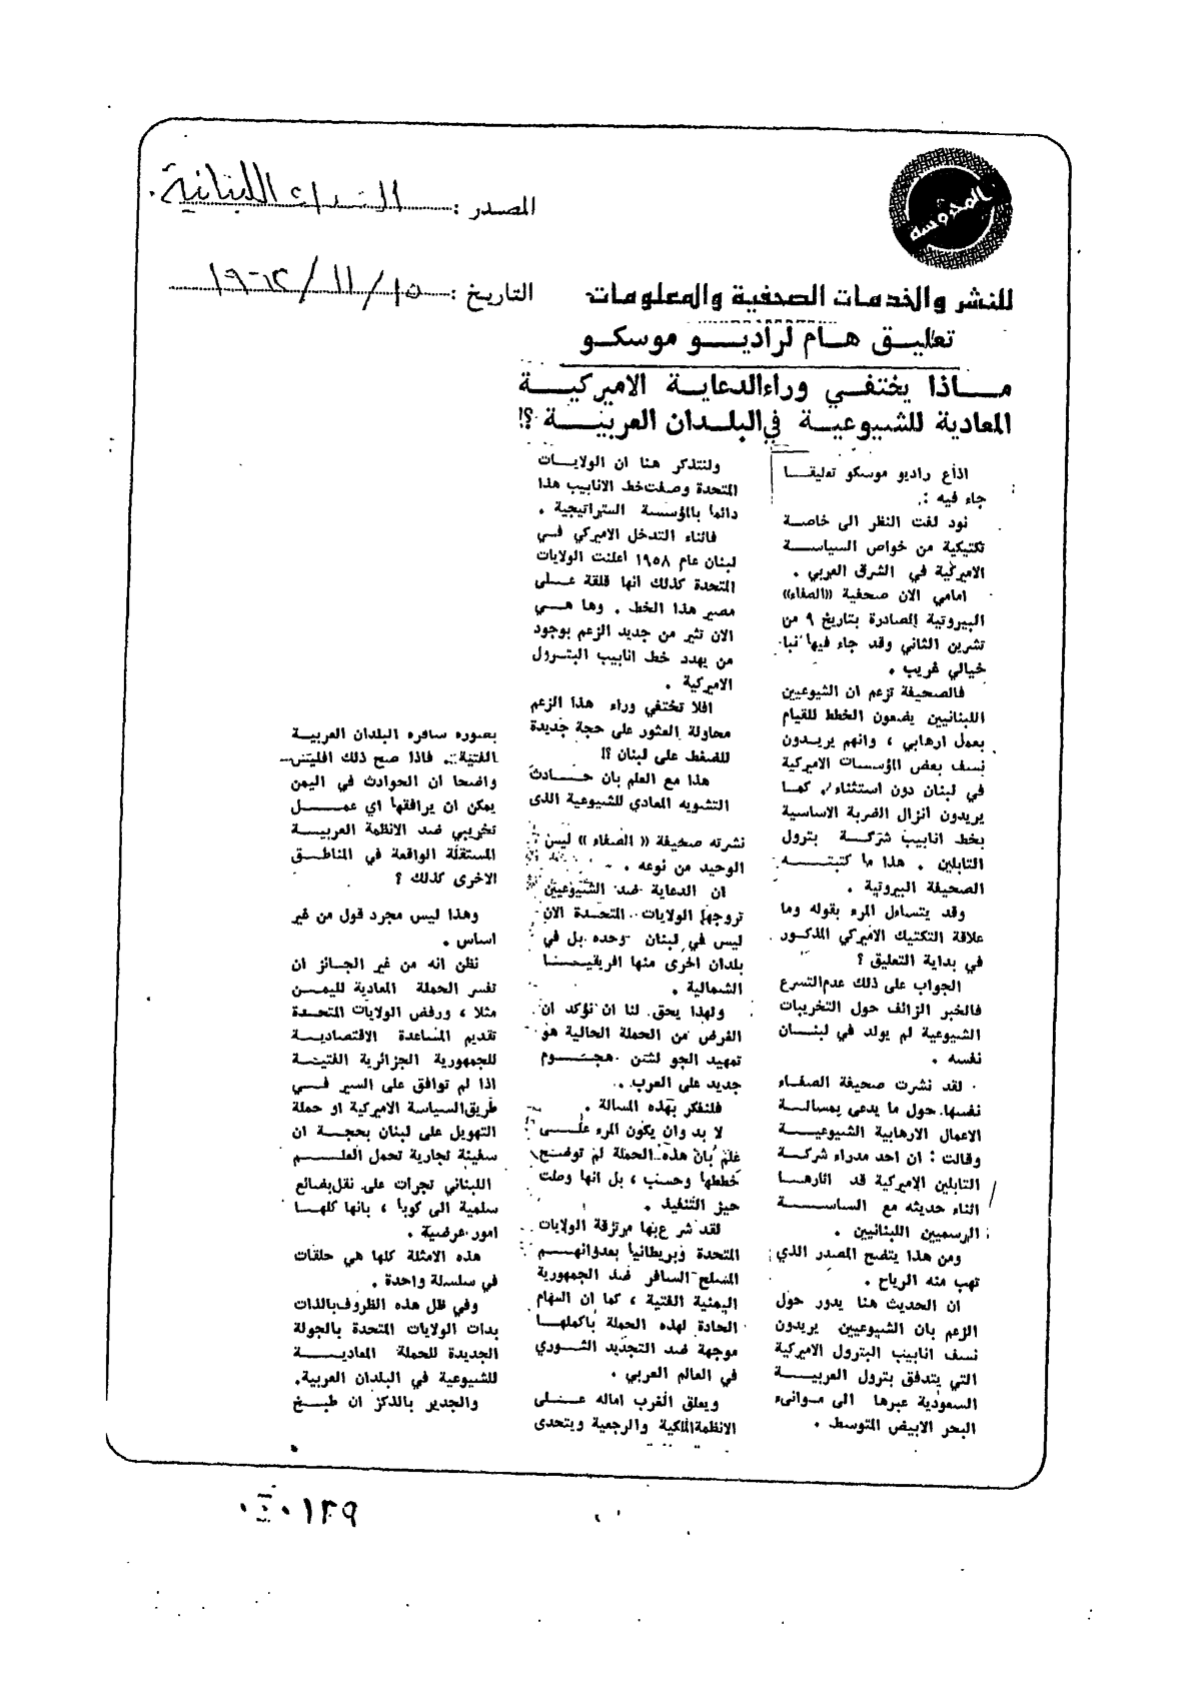 المحروسة
المصدر : النداء اللبنانية
للنشر والخدمات الصحفية والمعلومات
التاريخ : ١٥/١١/١٩٦٢
تعليق هام لراديو موسكو
ماذا يختفي وراء الدعاية الاميركية
المعادية للشيوعية في البلدان العربية ؟!
اذاع راديو موسكو تعليقا
جاء فيه :
نود لفت النظر الى خاصة
تكتيكية من خواص السياسة
الاميركية في الشرق العربي .
امامي الان صحفية «الصفاء»
البيروتية الصادرة بتاريخ ٩ من
تشرين الثاني وقد جاء فيها نبا
خيالي غريب .
فالصحيفة تزعم ان الشيوعيين
اللبنانيين يضعون الخطط للقيام
بعمل ارهابي ، وانهم يريدون
نسف بعض المؤسسات الاميركية
في لبنان دون استثناء ، كما
يريدون انزال الضربة الاساسية
بخط انابيب شركة بترول
التابلين . هذا ما كتبته
الصحيفة البيروتية .
وقد يتساءل المرء بقوله وما
علاقة التكتيك الاميركي المذكور
في بداية التعليق ؟
الجواب على ذلك عدم التسرع
فالخبر الزائف حول التخريبات
الشيوعية لم يولد في لبنان
نفسه .
لقد نشرت صحيفة الصفاء
نفسها حول ما يدعى بمسالة
الاعمال الارهابية الشيوعية
وقالت : ان احد مدراء شركة
التابلين الاميركية قد اثارها
اثناء حديثه مع الساسة
الرسميين اللبنانيين .
ومن هذا يتضح المصدر الذي
تهب منه الرياح .
ان الحديث هنا يدور حول
الزعم بان الشيوعيين يريدون
نسف انابيب البترول الاميركية
التي يتدفق بترول العربية
السعودية عبرها الى موانىء
البحر الابيض المتوسط .
ولنتذكر هنا ان الولايات
المتحدة وصفت خط الانابيب هذا
دائما بالمؤسسة الستراتيجية .
فاثناء التدخل الاميركي في
لبنان عام ١٩٥٨ اعلنت الولايات
المتحدة كذلك انها قلقة على
مصير هذا الخط . وها هي
الان تثير من جديد الزعم بوجود
من يهدد خط انابيب البترول
الاميركية .
افلا تختفي وراء هذا الزعم
محاولة العثور على حجة جديدة
للضغط على لبنان ؟!
هذا مع العلم بان حادث
التشويه المعادي للشيوعية الذى
نشرته صحيفة « الصفاء » ليس
الوحيد من نوعه .
ان الدعاية ضد الشيوعيين
تروجها الولايات المتحدة الان
ليس في لبنان وحده بل في
بلدان اخرى منها افريقيا
الشمالية .
ولهذا يحق لنا ان نؤكد ان
الغرض من الحملة الحالية هو
تمهيد الجو لشن هجوم
جديد على العرب .
فلنفكر بهذه المسالة .
لا بد وان يكون المرء على
علم بان هذه الحملة لم توضح
خططها وحسب ، بل انها وصلت
حيز التنفيذ .
لقد شرع بها مرتزقة الولايات
المتحدة وبريطانيا بعدوانهم
المسلح السافر ضد الجمهورية
اليمنية الفتية ، كما ان المهام
الحادة لهذه الحملة باكملها
موجهة ضد التجديد الثوري
في العالم العربي .
ويعلق الغرب اماله على
الانظمة الملكية والرجعية ويتحدى
بصوره سافره البلدان العربية
الفتية . فاذا صح ذلك افليس
واضحا ان الحوادث في اليمن
يمكن ان يرافقها اي عمل
تخريبي ضد الانظمة العربية
المستقلة الواقعة في المناطق
الاخرى كذلك ؟
وهذا ليس مجرد قول من غير
اساس .
نظن انه من غير الجائز ان
تفسر الحملة المعادية لليمن
مثلا ، ورفض الولايات المتحدة
تقديم المساعدة الاقتصادية
للجمهورية الجزائرية الفتية
اذا لم توافق على السير في
طريق السياسة الاميركية او حملة
التهويل على لبنان بحجة ان
سفينة تجارية تحمل العلم
اللبناني تجرات على نقل بضائع
سلمية الى كوبا ، بانها كلها
امور عرضية .
هذه الامثلة كلها هي حلقات
في سلسلة واحدة .
وفي ظل هذه الظروف بالذات
بدات الولايات المتحدة بالجولة
الجديدة للحملة المعادية
للشيوعية في البلدان العربية.
والجدير بالذكر ان طبخ